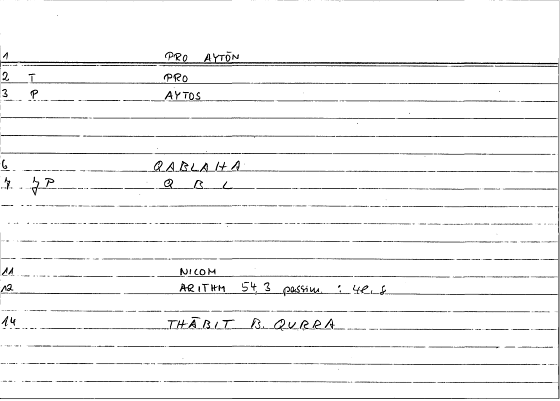 1 PRO AYTŌN
2 T PRO
3 P AYTOS
6 QABLAHA
7 P Q B L
11 NICOM
12 ARITHM 54,3 passim. : 48.8
14 THĀBIT B. QURRA